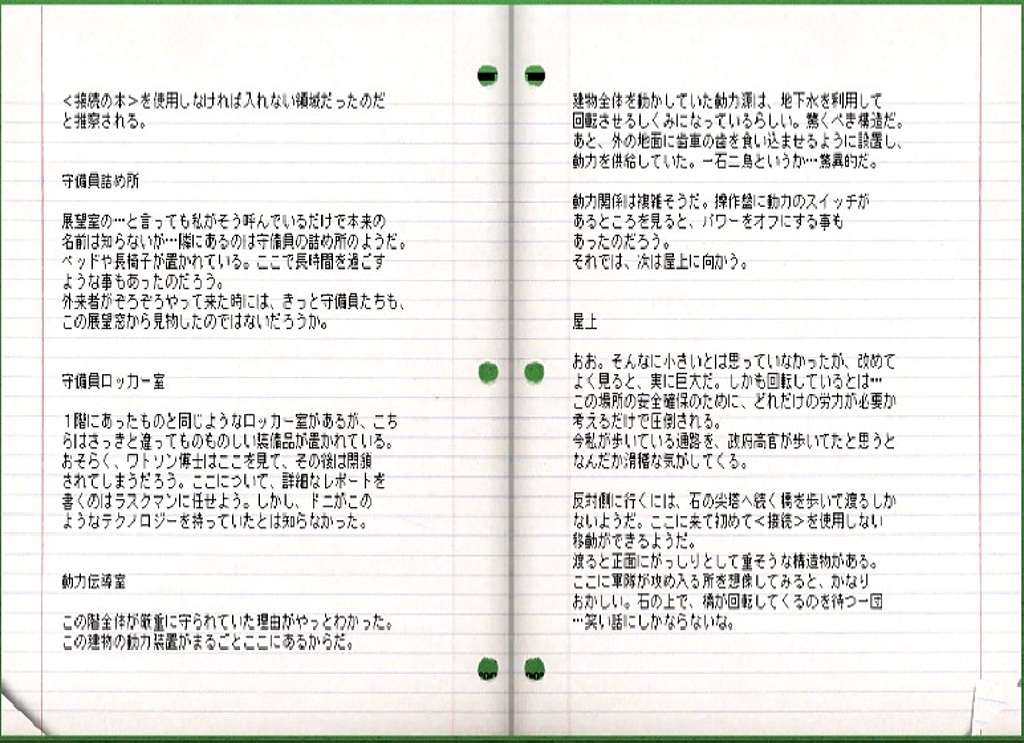 <接続の本>を使用しなければ入れない領域だったのだ
と推察される。
守備員詰め所
展望室の…と言っても私がそう呼んでいるだけで本来の
名前は知らないが…隣にあるのは守備員の詰め所のようだ。
ベッドや長椅子が置かれている。ここで長時間を過ごす
ような事もあったのだろう。
外来者がぞろぞろやって来た時には、きっと守備員たちも、
この展望窓から見物したのではないだろうか。
守備員ロッカー室
1階にあったものと同じようなロッカー室があるが、こち
らはさっきと違ってものものしい装備品が置かれている。
おそらく、ワトソン博士はここを見て、その後は閉鎖
されてしまうだろう。ここについて、詳細なレポートを
書くのはラスクマンに任せよう。しかし、ドニがこの
ようなテクノロジーを持っていたとは知らなかった。
動力伝導室
この階全体が厳重に守られていた理由がやっとわかった。
この建物の動力装置がまるごとここにあるからだ。
建物全体を動かしていた動力源は、地下水を利用して
回転させるしくみになっているらしい。驚くべき構造だ。
あと、外の地面に歯車の歯を食い込ませるように設置し、
動力を供給していた。一石二鳥というか…驚異的だ。
動力関係は複雑そうだ。操作盤に動力のスイッチが
あるところを見ると、パワーをオフにする事も
あったのだろう。
それでは、次は屋上に向かう。
屋上
おお。そんなに小さいとは思っていなかったが、改めて
よく見ると、実に巨大だ。しかも回転しているとは…
この場所の安全確保のために、どれだけの労力が必要か
考えるだけで圧倒される。
今私が歩いている通路を、政府高官が歩いてたと思うと
なんだか滑稽な気がしてくる。
反対側に行くには、石の尖塔へ続く橋を歩いて渡るしか
ないようだ。ここに来て初めて<接続>を使用しない
移動ができるようだ。
渡ると正面にがっしりとして重そうな構造物がある。
ここに軍隊が攻め入る所を想像してみると、かなり
おかしい。石の上で、橋が回転してくるのを待つ一団
…笑い話にしかならないな。